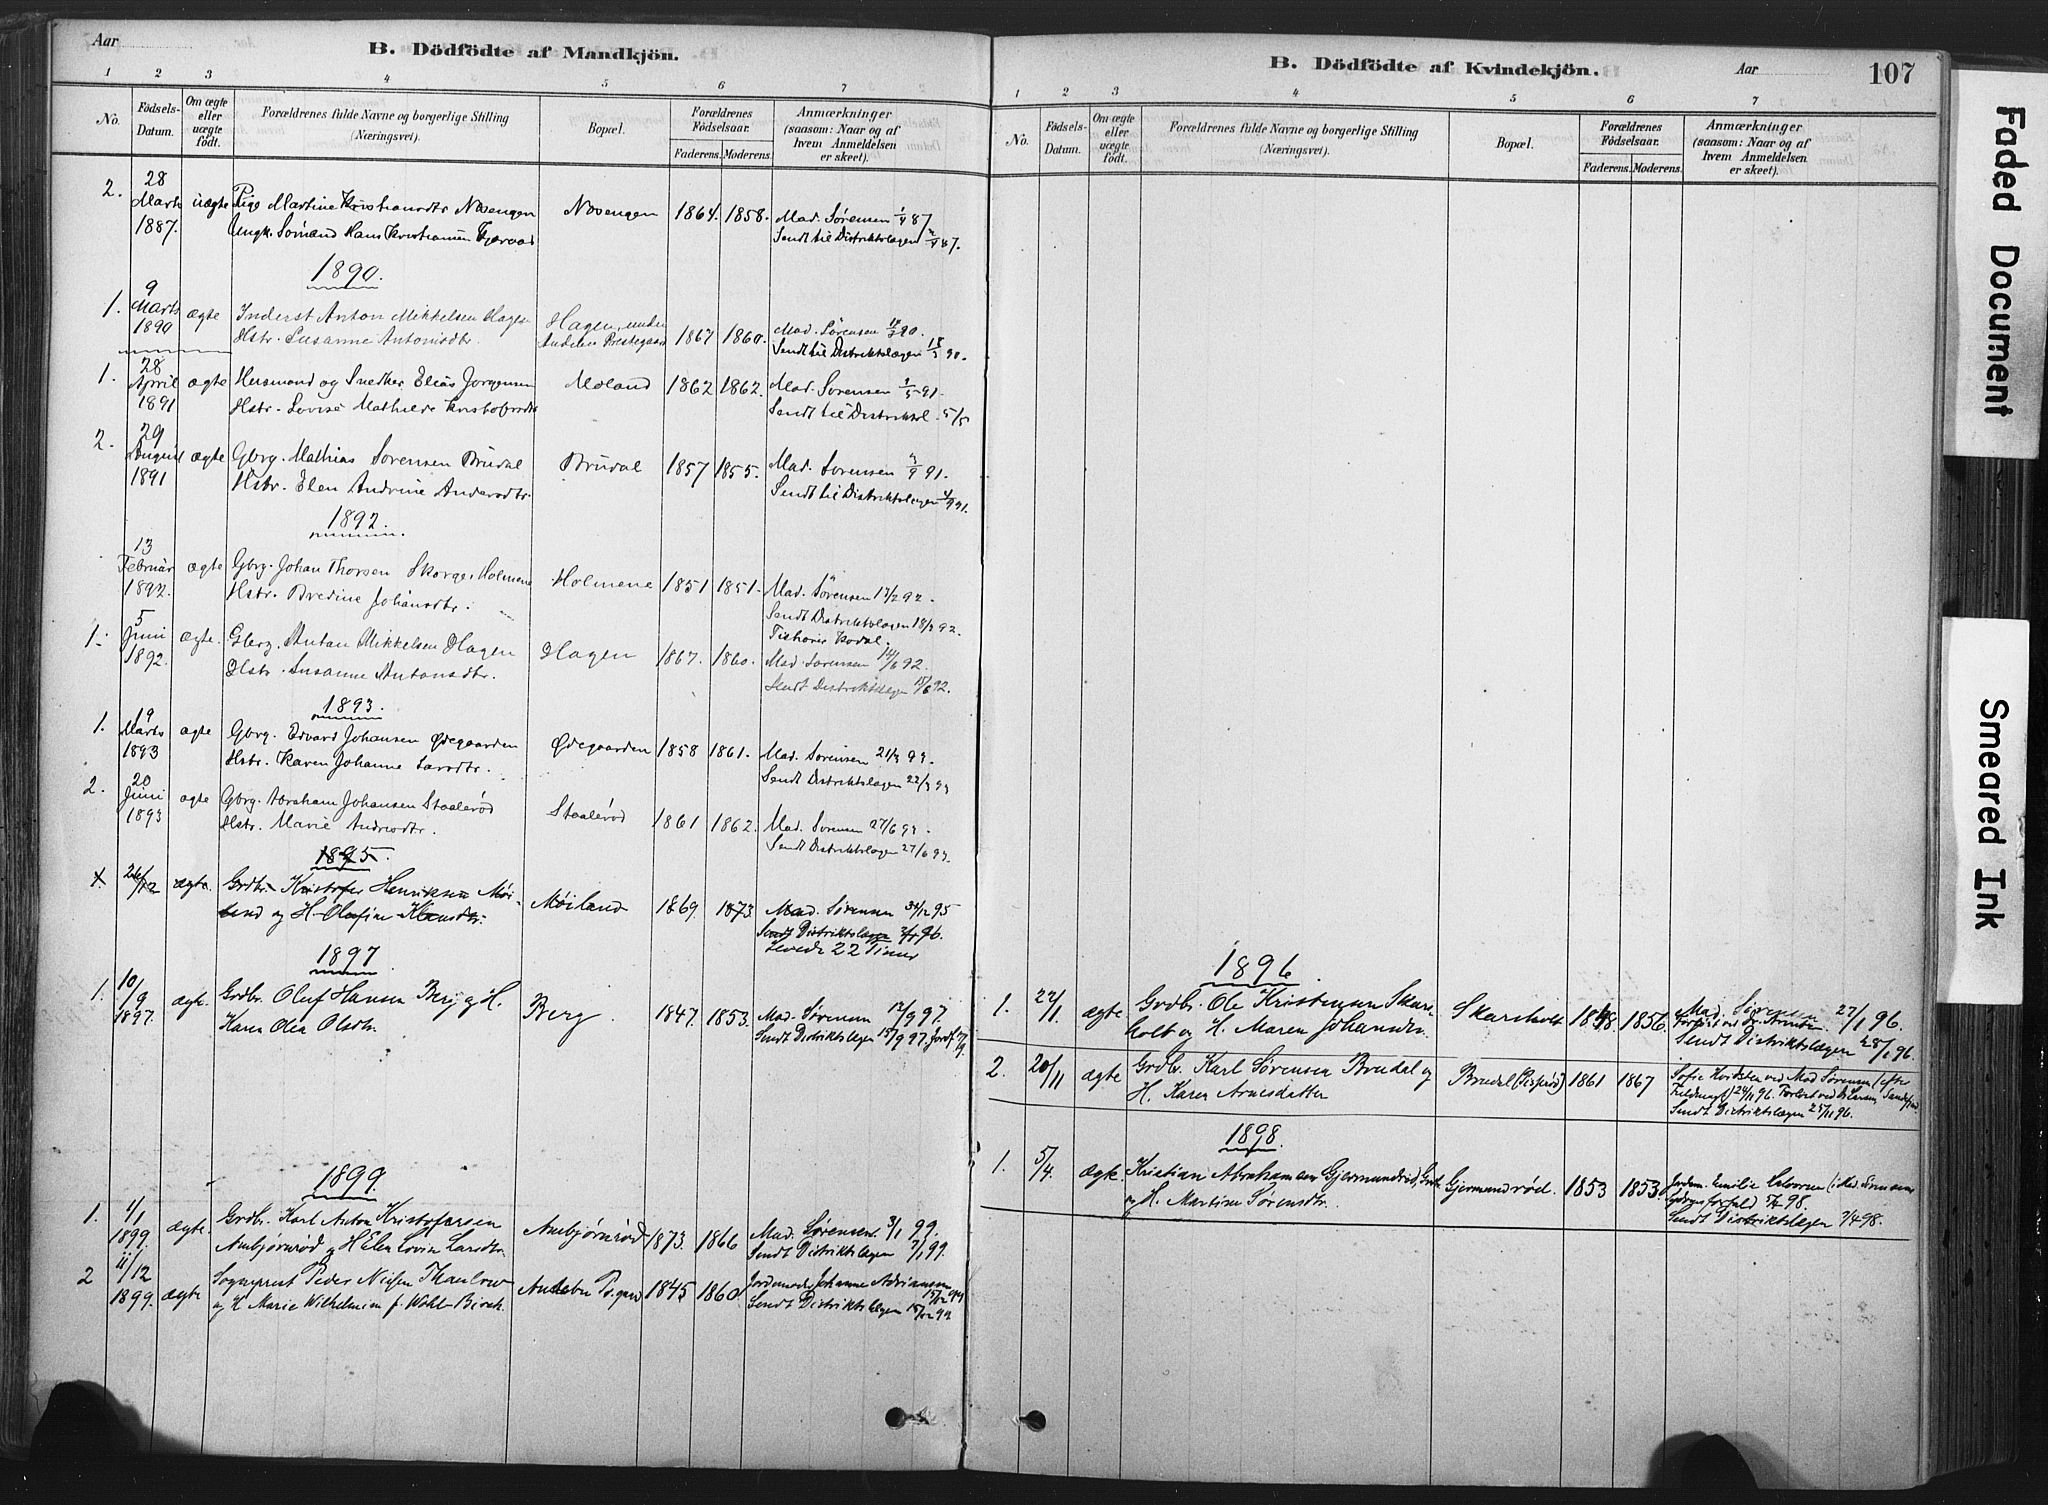 Aar
B. Dödfödte af Mandkjön.
1 2 3 4 5 6 7
No.
Födsels-
Datum.
Om ægte
eller
uægte
födt.
Forældrenes fulde Navne og borgerlige Stilling
(Næringsvei).
Bopæl.
Forældrenes
Födselsaar.
Faderens. Moderens.
Anmærkninger
(saasom: Naar og af
hvem Anmeldelsen
er skeet).
2. 28 Marts 1887. uægte
Pige Martine Kristiansdtr Nøsengen
Ungk. Sømand Hans Kristiansen
Nøsengen 1864. 1858.
Mad. Sørensen 1/4 87
Sendt til Distriktslægen 87.
1890.
1. 9 Marts 1890 ægte
Inderst Anton Mikkelsen Hagen
Hstr. Susanne Antonsdtr.
Hagen, under
1867 1860.
Mad. Sørensen 90.
Sendt til Distriktslægen 18/3 90.
1. 28 April 1891 ægte
Husmand og Snedker Elias Jørgensen
Hstr. Lovise Mathilde Kristofersdtr
Moland 1862 1862.
Mad. Sørensen 91.
Sendt til Distriktsl. 5/5
2. 29 August 1891 ægte
Gbrg. Mathias Sørensen Brudal
Hstr. Elen Andrine Andersdtr.
Brudal 1857 1855.
Mad. Sørensen 91.
Sendt til Distriktslægen 91.
1892.
13 Februar 1892. ægte
Gbrg. Johan Thorsen Skorge, Holmene
Hstr. Bredine Johansdtr.
Holmene 1851 1851.
Mad. Sørensen 17/2 92.
Sendt Distriktslægen 18/2 92.
Kodal.
1. 5 Juni 1892. ægte.
Gbrg. Anton Mikkelsen Hagen
Hstr. Susanne Antonsdtr.
Hagen 1867. 1860.
Mad. Sørensen 14/6 92.
Sendt Distriktslægen 15/6 92.
1893.
1. 19 Marts 1893 ægte
Gbrg. Edvard Johansen Ødegaarden
Hstr. Karen Johanne Larsdtr.
Ødegaarden 1858 1861.
Mad. Sørensen 21/3 93.
Sendt Distriktslægen 22/3 93
2. 20 Juni 1893 ægte
Gbrg. Abraham Johansen Staalerød
Hstr. Marie Andersdtr.
Staalerød 1861 1862.
Mad. Sørensen 27/6 93.
Sendt Distriktslægen 27/6 93.
1895.
1. 26/12 ægte.
Grdbr. Kristofer Henriksen Møi-
land og H. Olufine Klausdtr.
Møiland 1869 1873
Mad. Sørensen 31/12 95
Sendt Distriktslægen 2/1 96.
Levede 22 Timer
1897
1. 10/9 1897. ægte.
Grdbr. Oluf Hansen Berg og H.
Karen Olea Olsdtr.
Berg 1847. 1853.
Mad. Sørensen 12/9 97
Sendt Distriktslægen 15/9 97.
1899.
1. 1/1 1899. ægte.
Grdbr. Karl Anton Kristofersen
Ambjørnrød og H Elen Lovise Larsdtr.
Ambjørnrød 1873. 1866
Mad. Sørensen. 3/1 99.
Sendt Distriktslægen 7/1 99.
2 11/12 1899. ægte
Sogneprest Peder Nielsen Thaulow
og H. Marie Wilhelmine f. Wohl Birch.
Andebu Pgd 1845 1860
Jordemoder Johanne Adriansen 15/12 99
Sendt Distriktslægen 15/12 99
B. Dödfödte af Kvindekjön.
Aar
107
1 2 3 4 5 6 7
No.
Födsels-
Datum.
Om ægte
eller
uægte
födt.
Forældrenes fulde Navne og borgerlige Stilling
(Næringsvei).
Bopæl.
Forældrenes
Födselsaar.
Faderens. Moderens.
Anmærkninger
(saasom: Naar og af
hvem Anmeldelsen
er skeet).
1896.
1. 22/1. ægte
Grdbr. Ole Kristensen Skars-
holt og H. Maren Johansdtr.
Skarsholt 1848 1856.
Mad. Sørensen 27/1 96.
Sendt Distriktslægen 28/1 96.
2. 20/11 ægte
Grdbr. Karl Sørensen Brudal og
H. Karen Arnesdatter
Brudal 1861 1867
Sofie Kvidsten ved Mad Sørensen (efter
24/11 96.
Sendt Distriktslægen 25/11 96.
1898.
1. 5/4. ægte.
Kristian Abrahamsen Gjermundrød, Grdbr.
og H. Martine Sørensdtr.
Gjermundrød. 1853 1853.
Jordem. Emilie
98.
Sendt Distriktslægen 7/4 98.
Faded Document
Smeared Ink